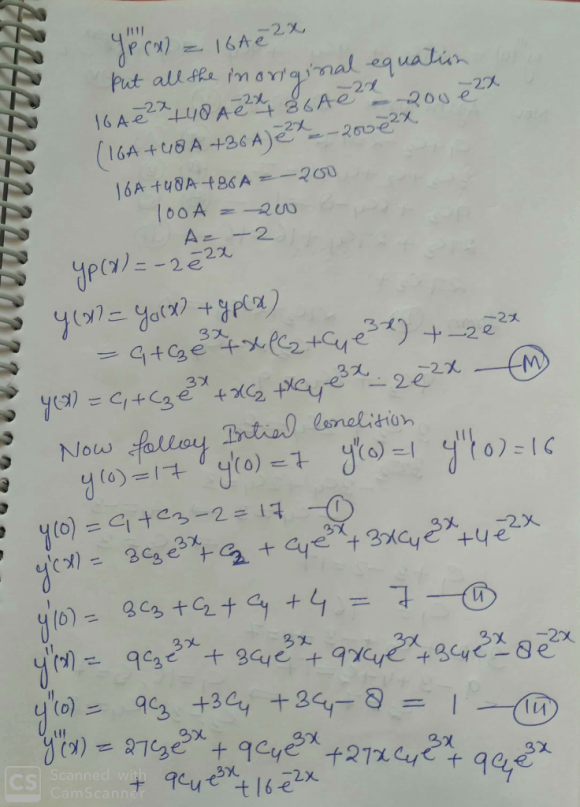 y''''p(x) = 16Ae^-2x
Put all the in original equation
16Ae^-2x + 48Ae^-2x + 36Ae^-2x = -200e^-2x
(16A + 48A + 36A)e^-2x = -200e^-2x
16A + 48A + 36A = -200
100A = -200
A = -2
yp(x) = -2e^-2x
y(x) = y0(x) + yp(x)
= C1 + C3e^3x + x(C2 + C4e^3x) + -2e^-2x
y(x) = C1 + C3e^3x + xC2 + xC4e^3x - 2e^-2x — (M)
Now follow Intial condition
y(0) = 17 y'(0) = 7 y''(0) = 1 y'''(0) = 16
y(0) = C1 + C3 - 2 = 17 — (I)
y'(x) = 3C3e^3x + C2 + C4e^3x + 3xC4e^3x + 4e^-2x
y'(0) = 3C3 + C2 + C4 + 4 = 7 — (II)
y''(x) = 9C3e^3x + 3C4e^3x + 9xC4e^3x + 3C4e^3x - 8e^-2x
y''(0) = 9C3 + 3C4 + 3C4 - 8 = 1 — (III)
y'''(x) = 27C3e^3x + 9C4e^3x + 27xC4e^3x + 9C4e^3x
+ 9C4e^3x + 16e^-2x
CS Scanned with
CamScanner